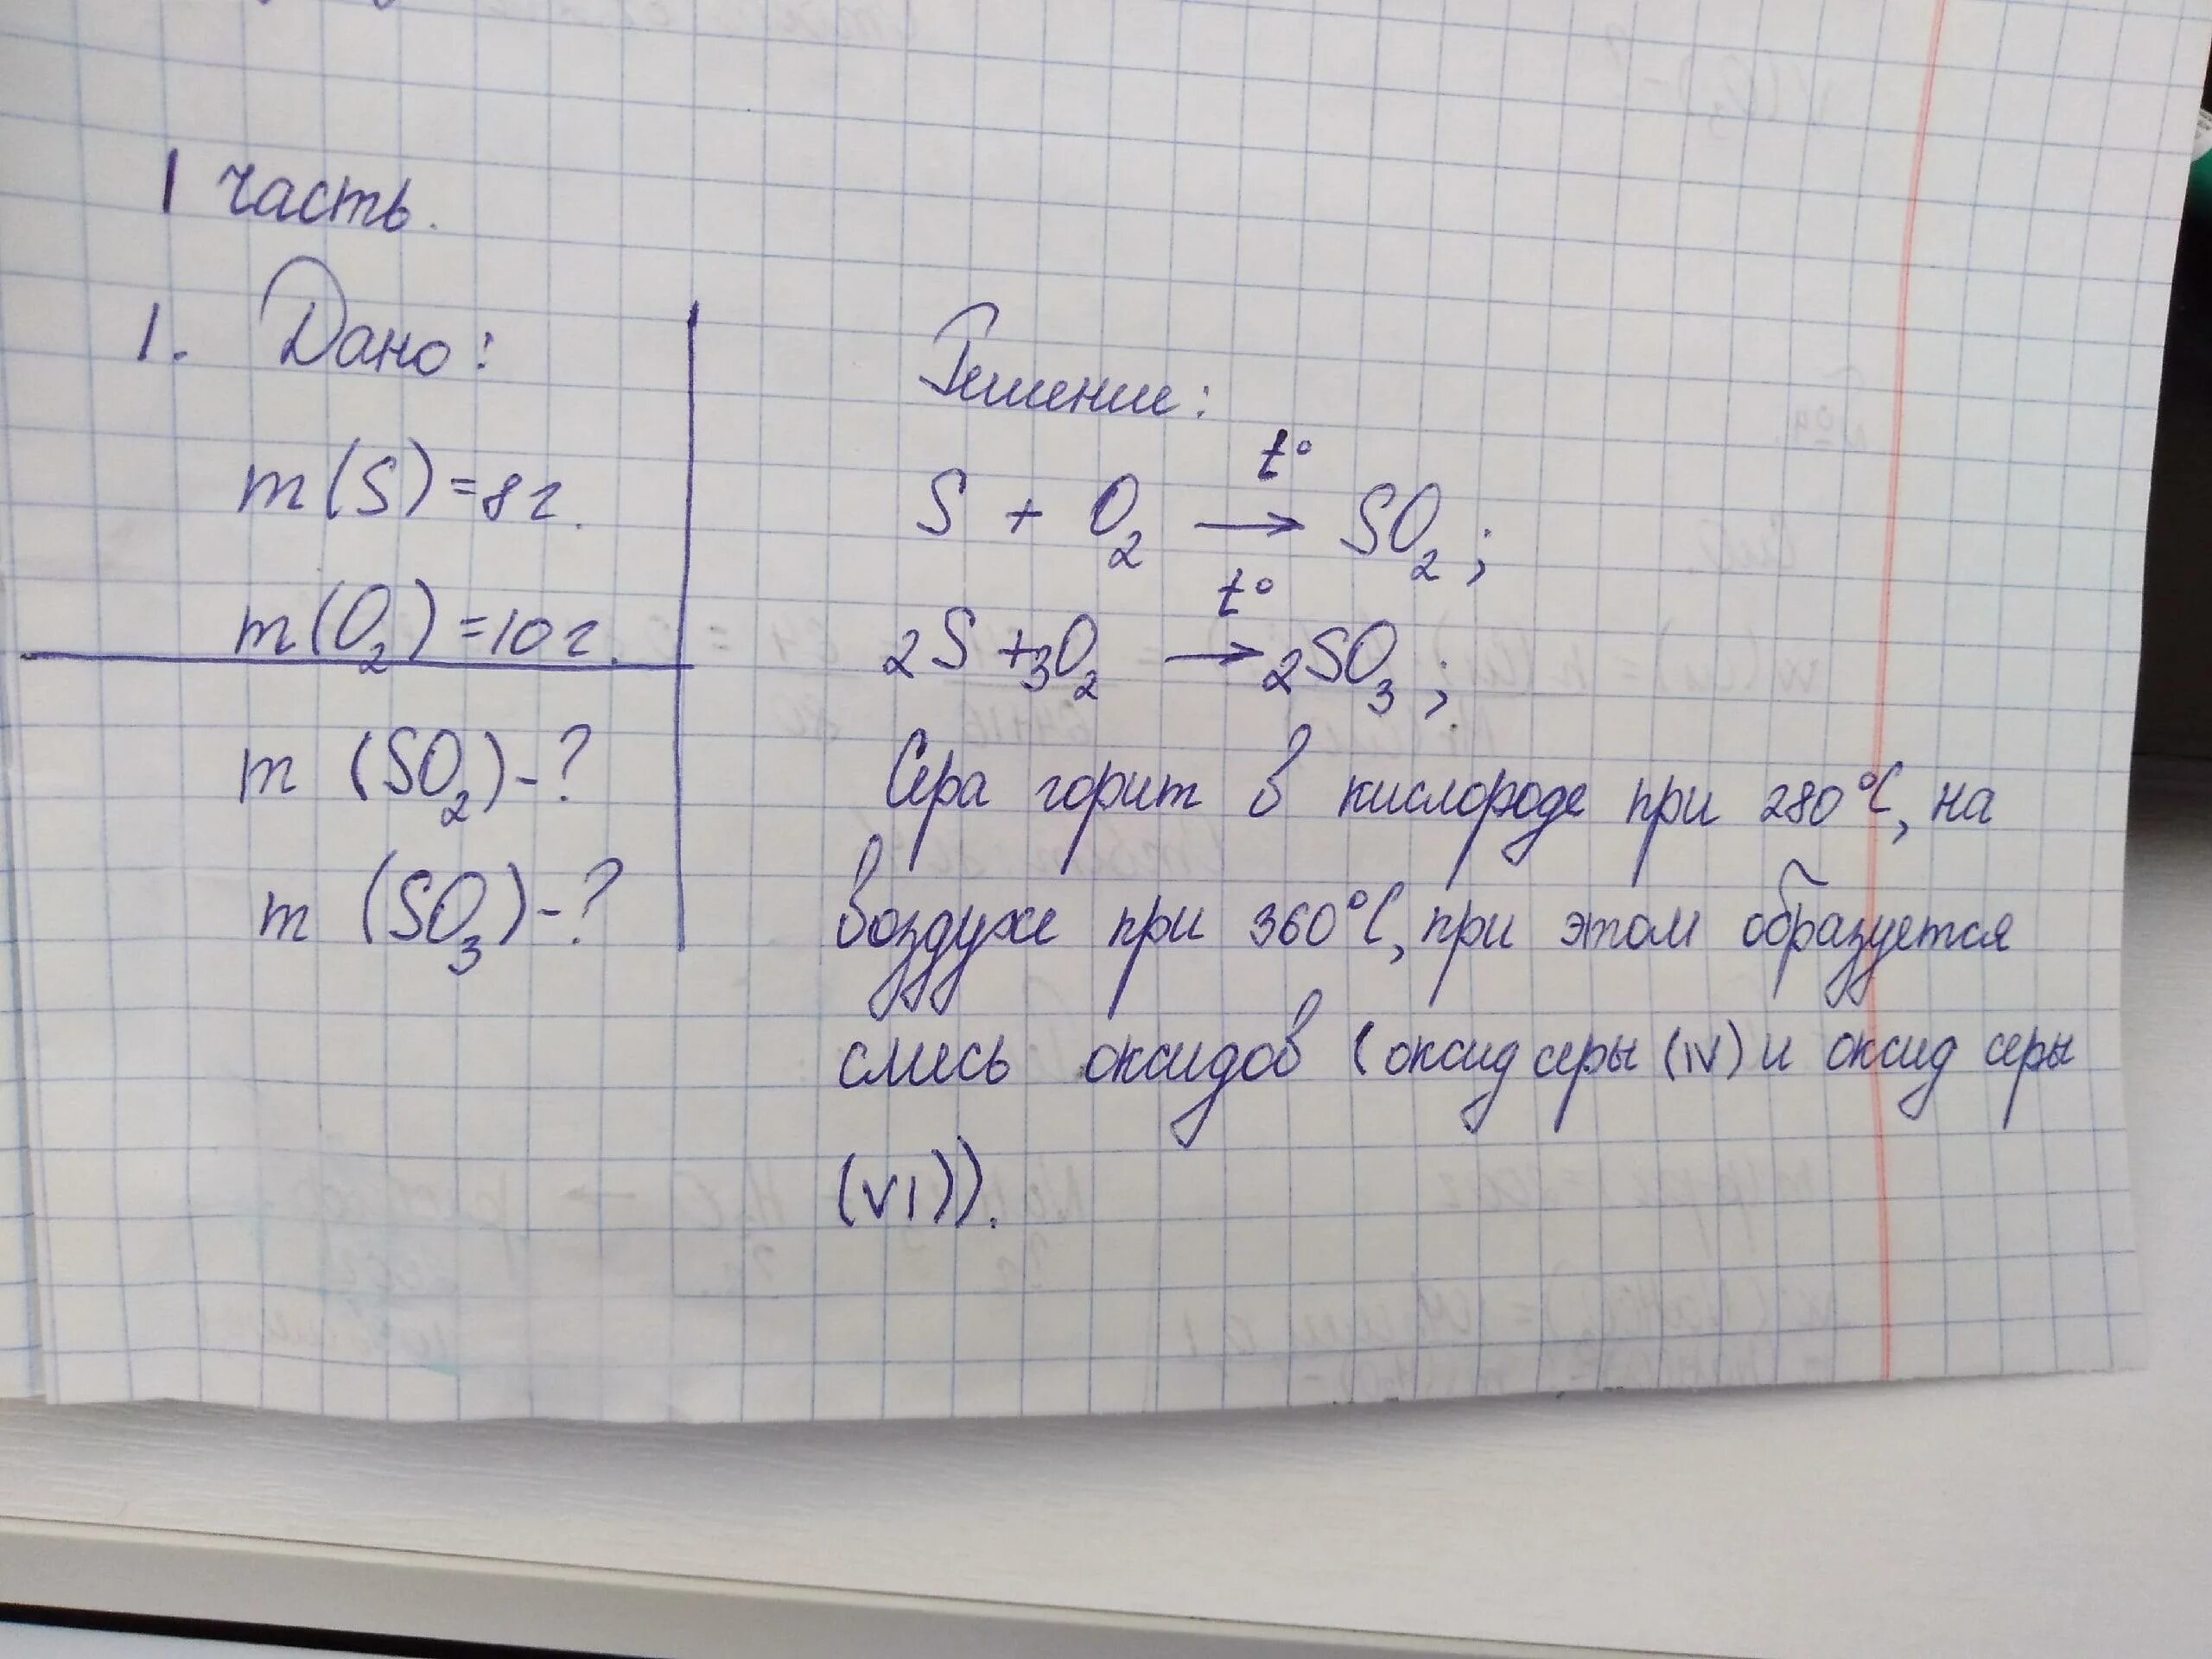 1 часть.
1. Дано:
m(S)=8г.
m(O₂)=10г.
m (SO₂)-?
m (SO₃)-?
Решение:
t°
S + O₂ → SO₂;
t°
2S+3O₂ → 2SO₃;
Сера горит в кислороде при 280°C, на
воздухе при 360°C, при этом образуется
смесь оксидов (оксид серы (IV) и оксид серы
(VI)).